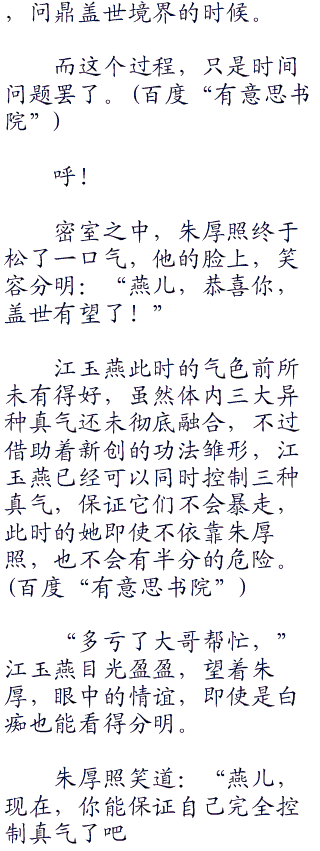 ，问鼎盖世境界的时候。
而这个过程，只是时间
问题罢了。(百度“有意思书
院”)
呼！
密室之中，朱厚照终于
松了一口气，他的脸上，笑
容分明：“燕儿，恭喜你，
盖世有望了！”
江玉燕此时的气色前所
未有得好，虽然体内三大异
种真气还未彻底融合，不过
借助着新创的功法雏形，江
玉燕已经可以同时控制三种
真气，保证它们不会暴走，
此时的她即使不依靠朱厚
照，也不会有半分的危险。
(百度“有意思书院”)
“多亏了大哥帮忙，”
江玉燕目光盈盈，望着朱
厚，眼中的情谊，即使是白
痴也能看得分明。
朱厚照笑道：“燕儿，
现在，你能保证自己完全控
制真气了吧